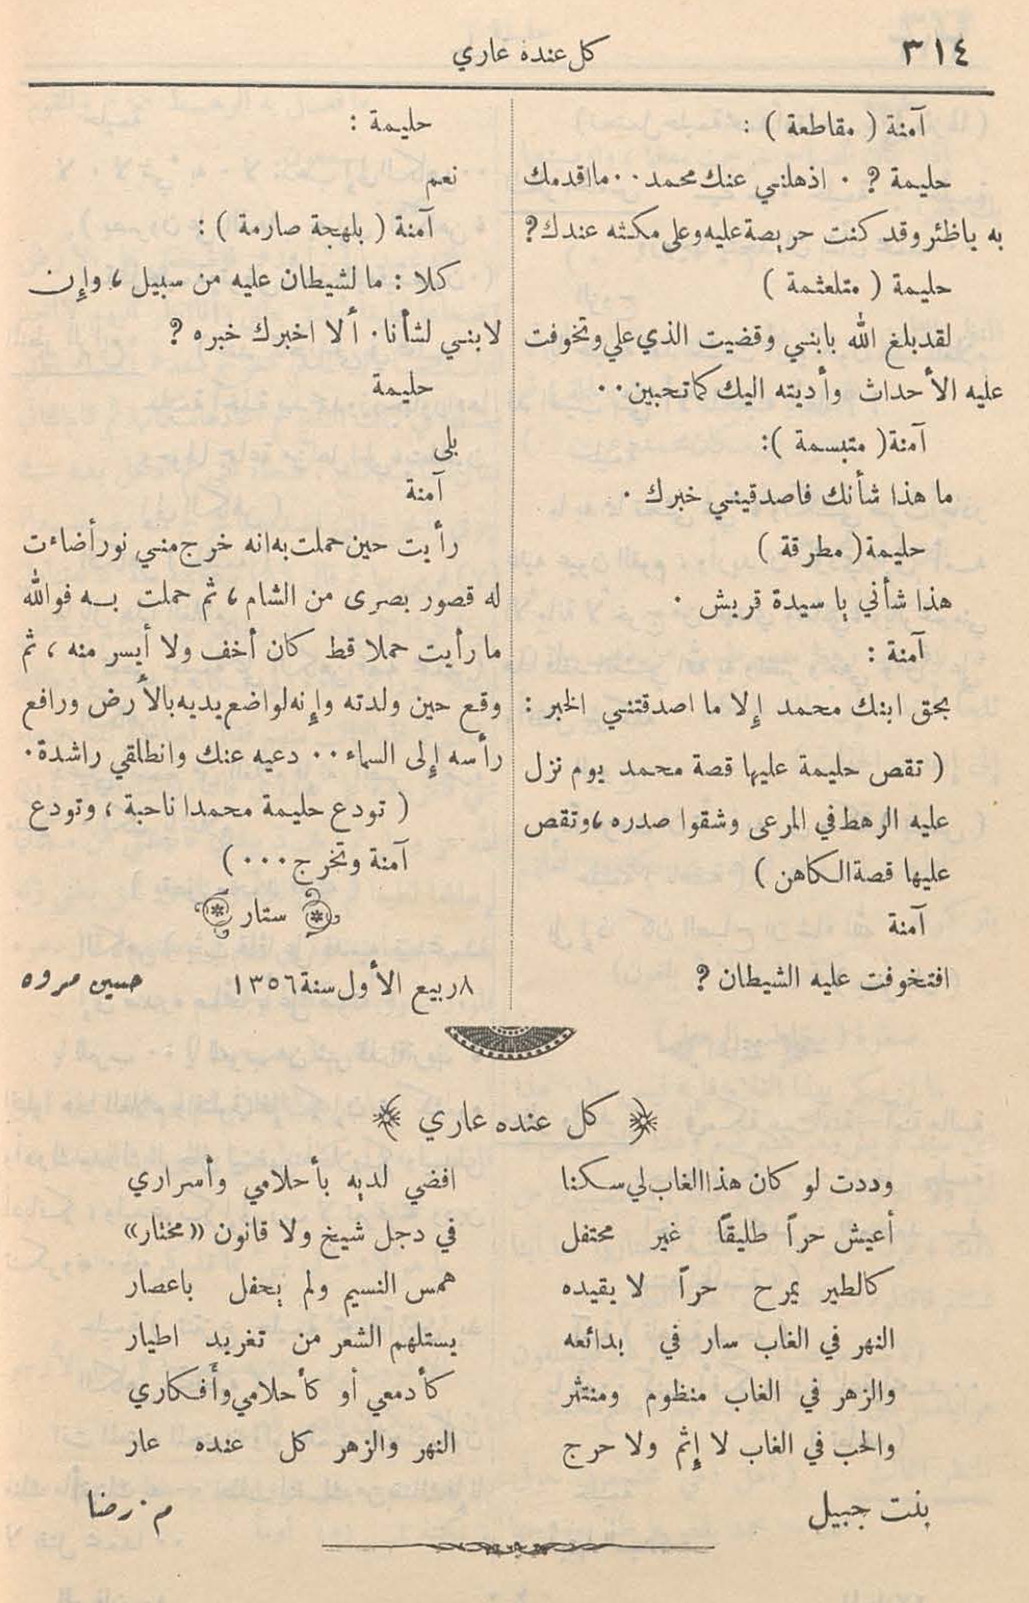 ٣١٤
كل عنده عاري
آمنة ( مقاطعة ) :
حليمة ؟ ٠ اذهلني عنك محمد ٠٠ ما اقدمك
به ياظئر وقد كنت حريصة عليه وعلى مكثه عندك ؟
حليمة ( متلعثمة )
لقد بلغ الله بابني وقضيت الذي علي وتخوفت
عليه الأحداث وأديته اليك كما تحبين ٠٠
آمنة ( متبسمة ):
ما هذا شأنك فاصدقيني خبرك ٠
حليمة ( مطرقة )
هذا شأني يا سيدة قريش ٠
آمنة :
بحق ابنك محمد إلا ما اصدقتني الخبر :
( تقص حليمة عليها قصة محمد يوم نزل
عليه الرهط في المرعى وشقوا صدره ، وتقص
عليها قصة الكاهن )
آمنة
افتخوفت عليه الشيطان ؟
حليمة :
نعم
آمنة ( بلهجة صارمة ) :
كلا : ما لشيطان عليه من سبيل ، وإن
لابني لشأنا ٠ ألا اخبرك خبره ؟
حليمة
بلى
آمنة
رأيت حين حملت به انه خرج مني نور أضاءت
له قصور بصرى من الشام ، ثم حملت به فوالله
ما رأيت حملا قط كان أخف ولا أيسر منه ، ثم
وقع حين ولدته وإنه لواضع يديه بالأرض ورافع
رأسه إلى السماء ٠٠ دعيه عنك وانطلقي راشدة ٠
( تودع حليمة محمدا ناحبة ، وتودع
آمنة وتخرج ٠٠٠ )
ستار
٨ ربيع الأول سنة ١٣٥٦ حسين مروه
كل عنده عاري
وددت لو كان هذا الغاب لي سكنا افضي لديه بأحلامي وأسراري
أعيش حراً طليقاً غير محتفل في دجل شيخ ولا قانون «مختار»
كالطير يمرح حراً لا يقيده همس النسيم ولم يحفل باعصار
النهر في الغاب سار في بدائعه يستلهم الشعر من تغريد اطيار
والزهر في الغاب منظوم ومنتثر كأدمعي أو كأحلامي وأفكاري
والحب في الغاب لا إثم ولا حرج النهر والزهر كل عنده عار
بنت جبيل م ٠ رضا